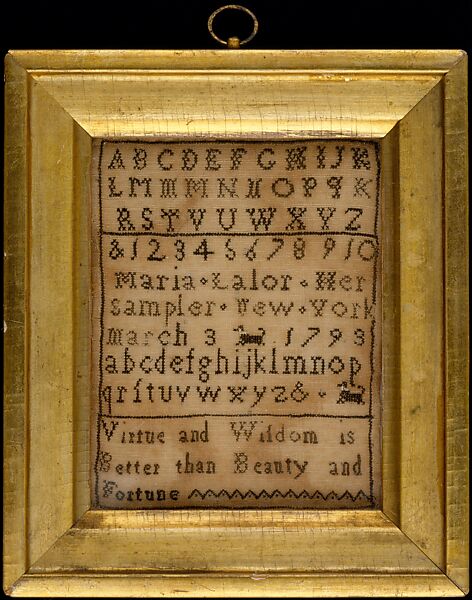 ABCDEFGHIJK
LMMMNNOPQK
RSTVUWXYZ
&12345678910
Maria Lalor Her
Sampler New York
March 3 1793
abcdefghijklmnop
qrſtuvwxyz&
Virtue and Wisdom is
Better than Beauty and
Fortune